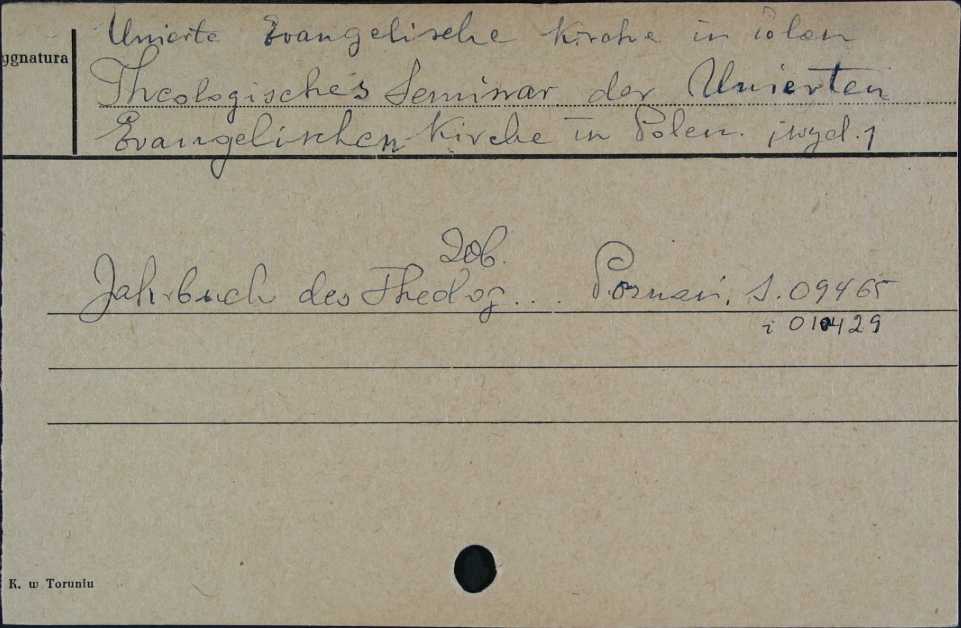 Unierte Evangelische Kirche in Polen
ygnatura
Theologisches Seminar der Unierten
Evangelischen Kirche in Polen. [wyd.]
Zob.
Jahrbuch des Theolog... Poznań, S. 09465
i 010429
K. w Toruniu